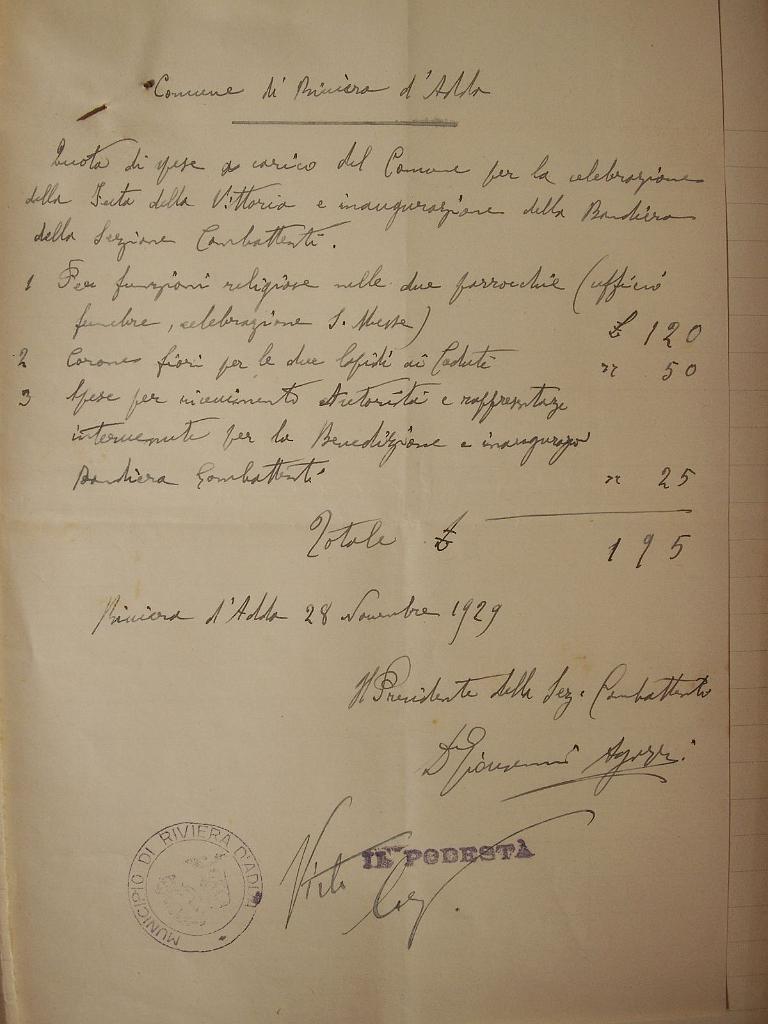 Comune di Riviera d'Adda
Quota di spese a carico del Comune per la celebrazione
della Festa della Vittoria e inaugurazione della Bandiera
della Sezione Combattenti.
1 Per funzioni religiose nelle due parrocchie (ufficio
funebre, celebrazione S. Messe) £ 120
2 Corone fiori per le due lapidi ai Caduti " 50
3 Spese per ricevimento Autorità e rappresentanze
intervenute per la Benedizione e inauguraz
Bandiera Combattenti " 25
Totale £ 195
Riviera d'Adda 28 Novembre 1929
Il Presidente della Sez. Combattenti
Dr Giovanni Agazzi
Visto IL PODESTÀ
MUNICIPIO DI RIVIERA D'ADDA